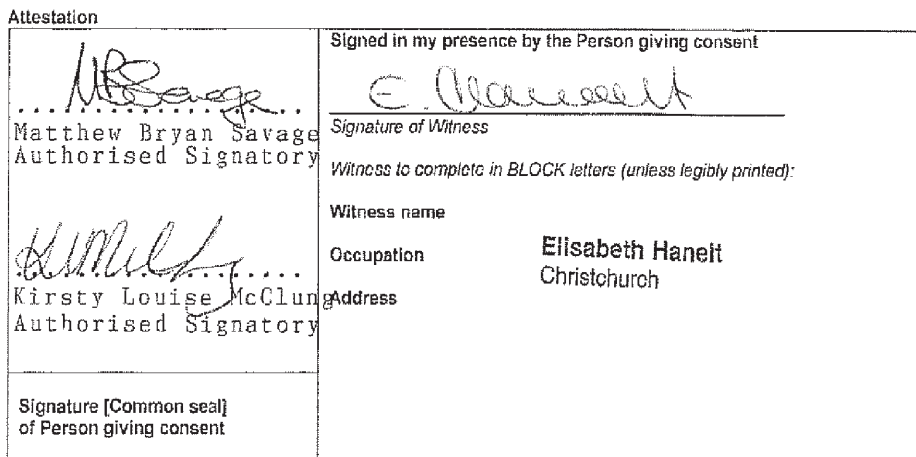 Attestation
Matthew Bryan Savage
Authorised Signatory
Kirsty Louise McClung
Authorised Signatory
Signature [Common seal]
of Person giving consent
Signed in my presence by the Person giving consent
Signature of Witness
Witness to complete in BLOCK letters (unless legibly printed):
Witness name
Occupation
Elisabeth Haneit
Christchurch
Address